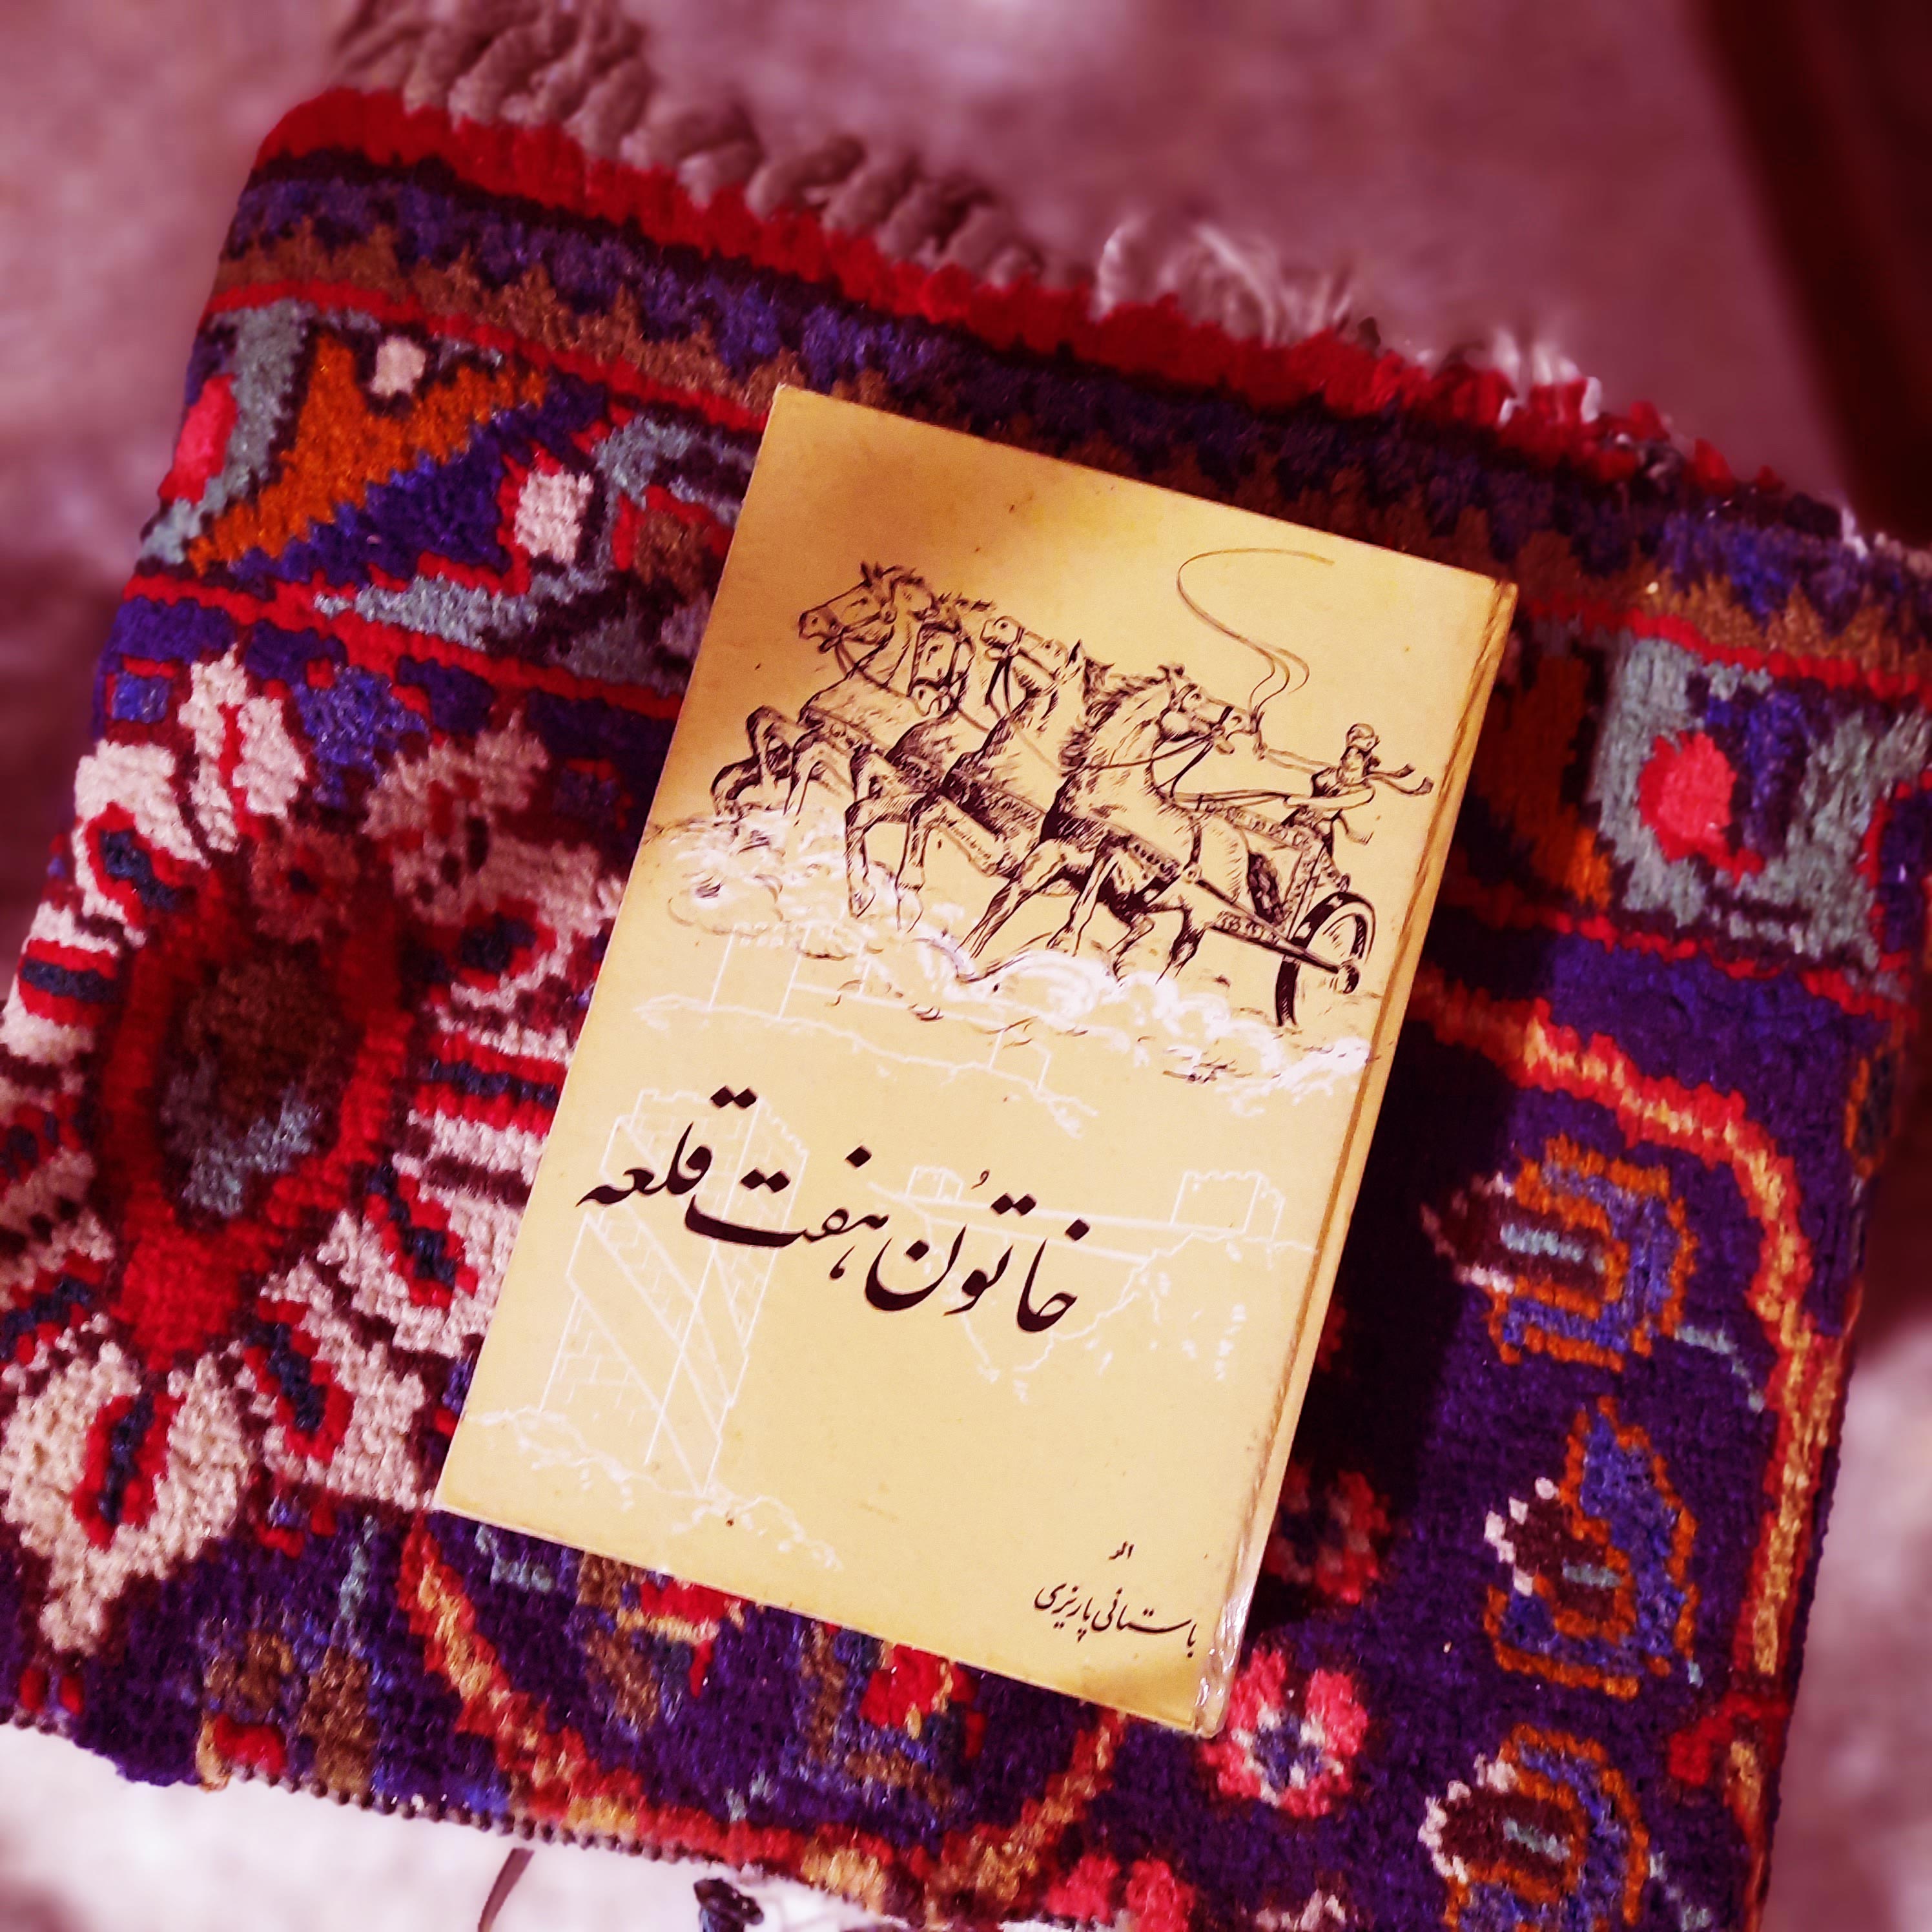 خاتُون هفت قلعه
از
باستانی پاریزی